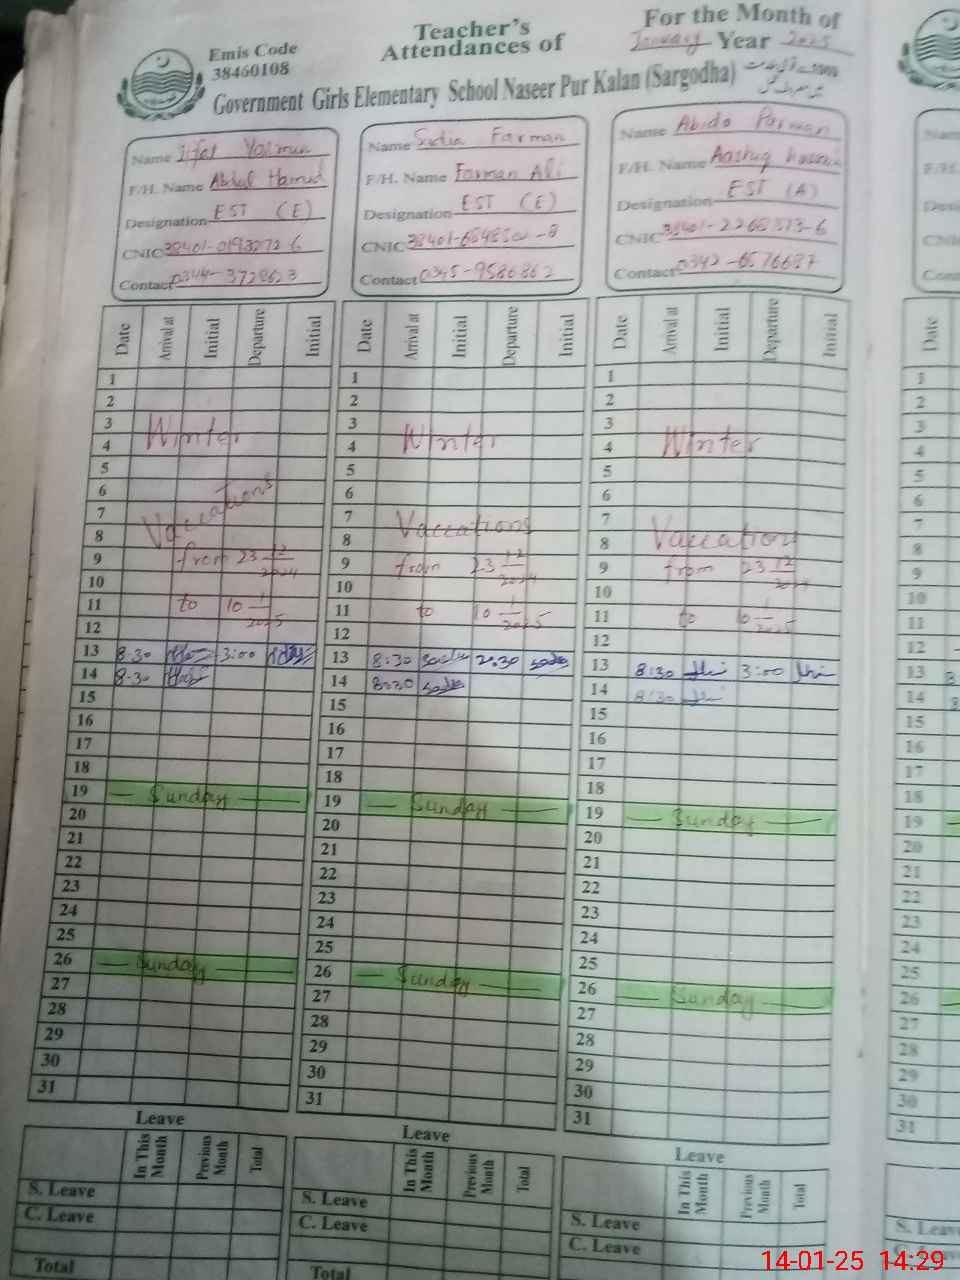 Emis Code
38460108
Teacher's
Attendances of
For the Month of
January Year 2025
Government Girls Elementary School Naseer Pur Kalan (Sargodha)
Name Iffat Yasmin
F/H. Name Abdul Hamid
Designation EST (E)
CNIC 38401-0193272-6
Contact 0344-3728623
Date Arrival at Initial Departure Initial
1
2
3
4 Winter
5
6
7 Vaccations
8
9 from 23 12/2024
10
11 to 10 1/2025
12
13 8:30 3:00
14 8:30
15
16
17
18
19 Sunday
20
21
22
23
24
25
26 Sunday
27
28
29
30
31
Leave
In This Month Previous Month Total
S. Leave
C. Leave
Total
Name Sadia Farman
F/H. Name Farman Ali
Designation EST (E)
CNIC
Contact 0345-9586862
Date Arrival at Initial Departure Initial
1
2
3
4 Winter
5
6
7 Vaccations
8
9 from 23 12/2024
10
11 to 10 1/2025
12
13 8:30 Sadia 2:30 Sadia
14 8:30 Sadia
15
16
17
18
19 Sunday
20
21
22
23
24
25
26 Sunday
27
28
29
30
31
Leave
In This Month Previous Month Total
S. Leave
C. Leave
Total
Name Abida Parman
F/H. Name Aashiq Hussain
Designation EST (A)
CNIC
Contact 0342-6576687
Date Arrival at Initial Departure Initial
1
2
3
4 Winter
5
6
7
8 Vaccations
9 from 23 12/2024
10
11 to 10 1/2025
12
13 8:30 3:00
14 8:30
15
16
17
18
19 Sunday
20
21
22
23
24
25
26 Sunday
27
28
29
30
31
Leave
In This Month Previous Month Total
S. Leave
C. Leave
Date
1
2
3
4
5
6
7
8
9
10
11
12
13
14
15
16
17
18
19
20
21
22
23
24
25
26
27
28
29
30
31
S. Leave
14-01-25 14:29